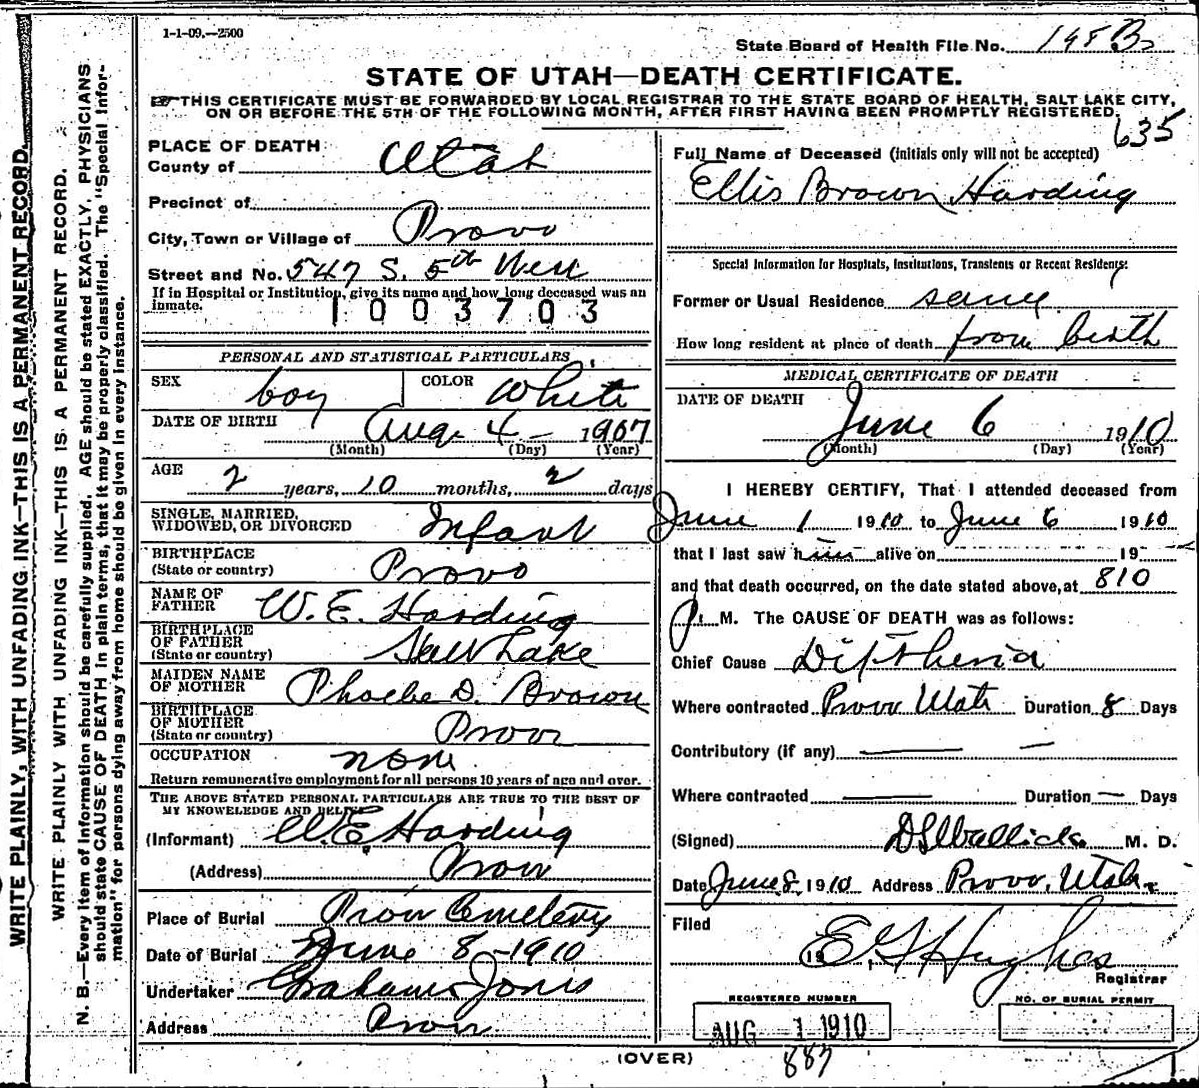 1-1-09.—2500
State Board of Health File No. 148 B
STATE OF UTAH—DEATH CERTIFICATE.
THIS CERTIFICATE MUST BE FORWARDED BY LOCAL REGISTRAR TO THE STATE BOARD OF HEALTH, SALT LAKE CITY,
ON OR BEFORE THE 5TH OF THE FOLLOWING MONTH, AFTER FIRST HAVING BEEN PROMPTLY REGISTERED.
635
WRITE PLAINLY, WITH UNFADING INK—THIS IS A PERMANENT RECORD.
WRITE PLAINLY WITH UNFADING INK—THIS IS A PERMANENT RECORD.
N. B.—Every item of information should be carefully supplied. AGE should be stated EXACTLY, PHYSICIANS
should state CAUSE OF DEATH in plain terms, that it may be properly classified. The "Special Infor-
mation" for persons dying away from home should be given in every instance.
PLACE OF DEATH
County of Utah
Precinct of
City, Town or Village of Provo
Street and No. 547 S. 5th West
If in Hospital or Institution, give its name and how long deceased was an
inmate.
1003703
PERSONAL AND STATISTICAL PARTICULARS
SEX boy COLOR White
DATE OF BIRTH Aug 4 — 1907
(Month) (Day) (Year)
AGE 2 years, 10 months, 2 days
SINGLE, MARRIED,
WIDOWED, OR DIVORCED Infant
BIRTHPLACE
(State or country) Provo
NAME OF
FATHER W. E. Harding
BIRTHPLACE
OF FATHER
(State or country) Salt Lake
MAIDEN NAME
OF MOTHER Phoebe D. Brown
BIRTHPLACE
OF MOTHER
(State or country) Provo
OCCUPATION none
Return remunerative employment for all persons 10 years of age and over.
THE ABOVE STATED PERSONAL PARTICULARS ARE TRUE TO THE BEST OF
MY KNOWLEDGE AND BELIEF
(Informant) W. E. Harding
(Address) Provo
Place of Burial Provo Cemetery
Date of Burial June 8 - 1910
Undertaker Graham Jones
Address Provo
Full Name of Deceased (initials only will not be accepted)
Ellis Brown Harding
Special Information for Hospitals, Institutions, Transients or Recent Residents:
Former or Usual Residence same
How long resident at place of death from birth
MEDICAL CERTIFICATE OF DEATH
DATE OF DEATH
June 6 1910
(Month) (Day) (Year)
I HEREBY CERTIFY, That I attended deceased from
June 1 1910 to June 6 1910
that I last saw him alive on 19
and that death occurred, on the date stated above, at 810
P. M. The CAUSE OF DEATH was as follows:
Chief Cause Diptheria
Where contracted Provo Utah Duration 8 Days
Contributory (if any) — —
Where contracted — Duration — Days
(Signed) M. D.
Date June 8, 1910 Address Provo, Utah
Filed
19 E G Hughes
Registrar
REGISTERED NUMBER
AUG 1 1910
887
NO. OF BURIAL PERMIT
(OVER)